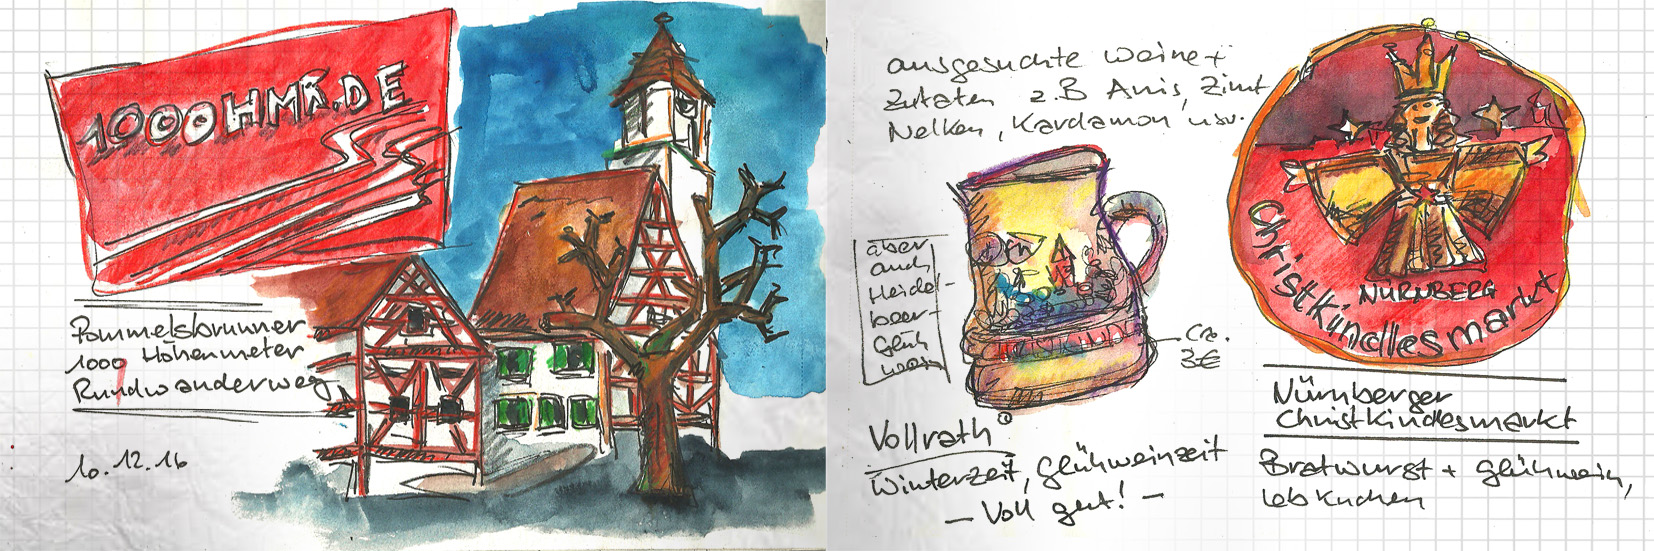 1000HMR.DE
Pommelsbrunner
1000 Höhenmeter
Rundwanderweg
10.12.16
ausgesuchte Weine +
Zutaten z.B Anis, Zimt
Nelken, Kardamon usw.
aber
auch
Heidel-
beer-
Glüh
wein
Ca.
3€
Vollrath
Winterzeit, Glühweinzeit
- Voll gut! -
NÜRNBERG
Christkindlesmarkt
Nürnberger
Christkindesmarkt
Bratwurst + Glühwein,
Lebkuchen